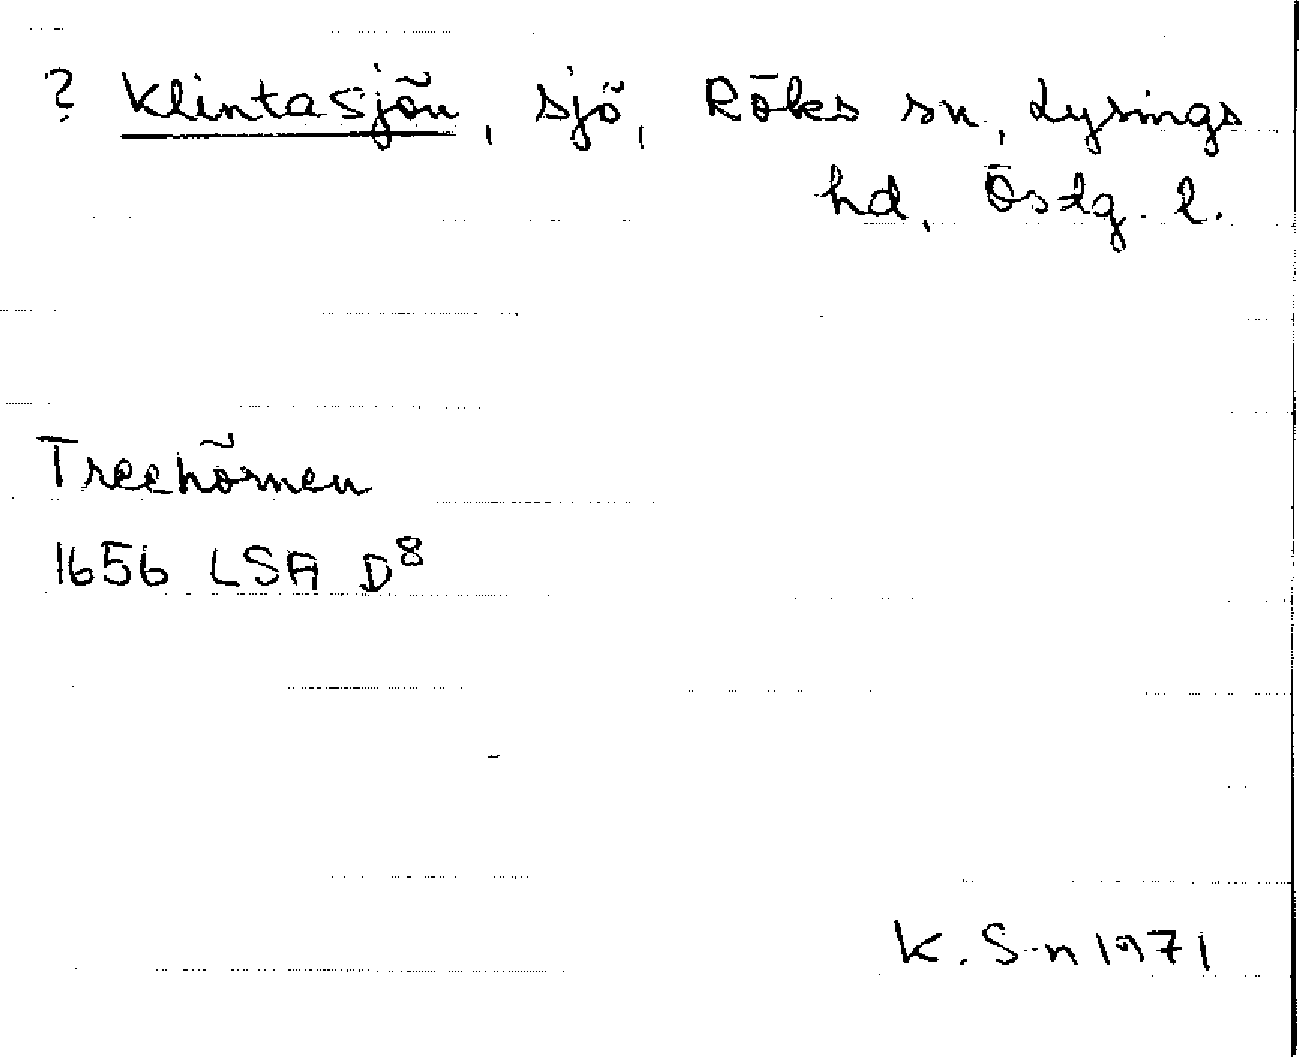 ? Klintasjön, sjö, Röks sn, Lysings
hd, Östg. l.
Treehörnen
1656 LSA D8
K. S-n 1971